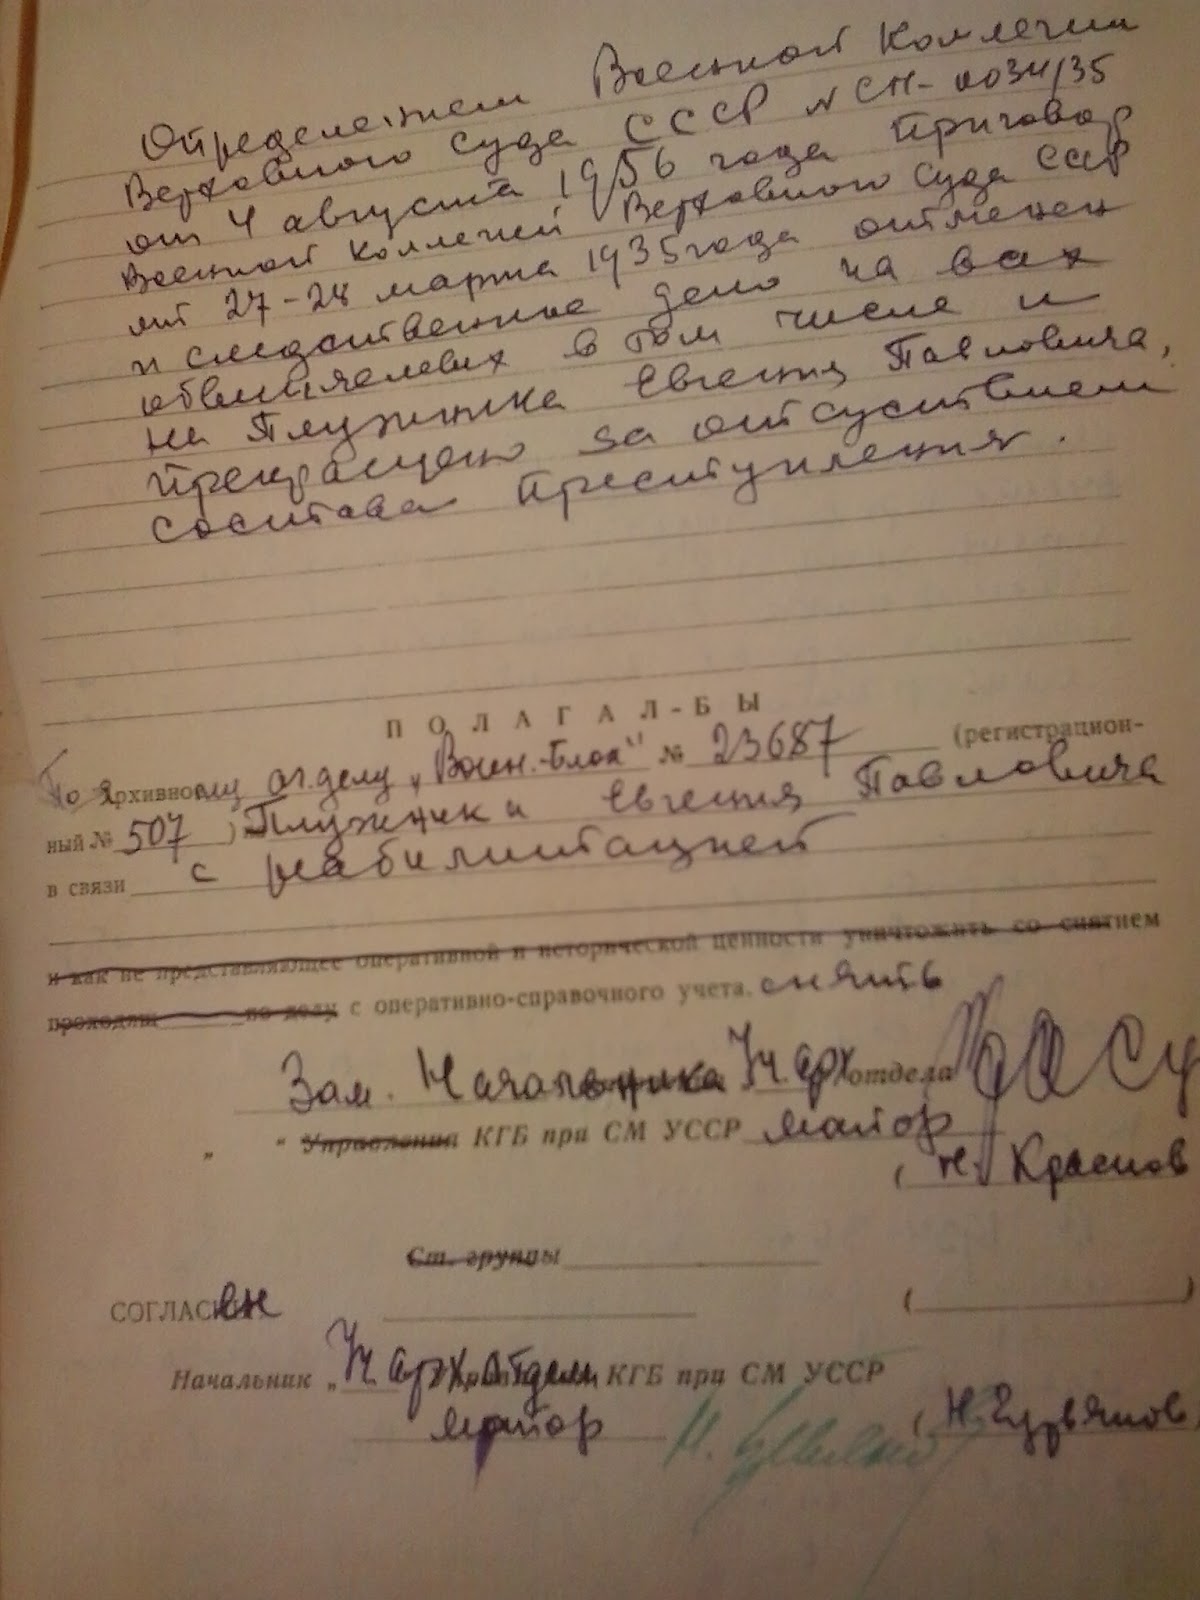 Определением Военной Коллегии
Верховного Суда СССР № СП-0034/35
от 4 августа 1956 года приговор
Военной Коллегией Верховного Суда СССР
от 27-28 марта 1935 года отменен
и следственное дело на всех
обвиняемых в том числе и
на Плужника Евгения Павловича,
прекращено за отсутствием
состава преступления.
ПОЛАГАЛ-БЫ
По архивному отделу № 23687 (регистрацион-
ный № 507 ) Плужника Евгения Павловича
в связи с реабилитацией
и как не представляющее оперативной и исторической ценности уничтожить со снятием
проходящ по делу с оперативно-справочного учета. снять
Зам. Начальника Уч. арх отдела
„ " Управления КГБ при СМ УССР майор
( Н. Краснов
Ст. группы
СОГЛАСЕН ( )
Начальник „ Уч. арх. отдела КГБ при СМ УССР
майор ( Н.